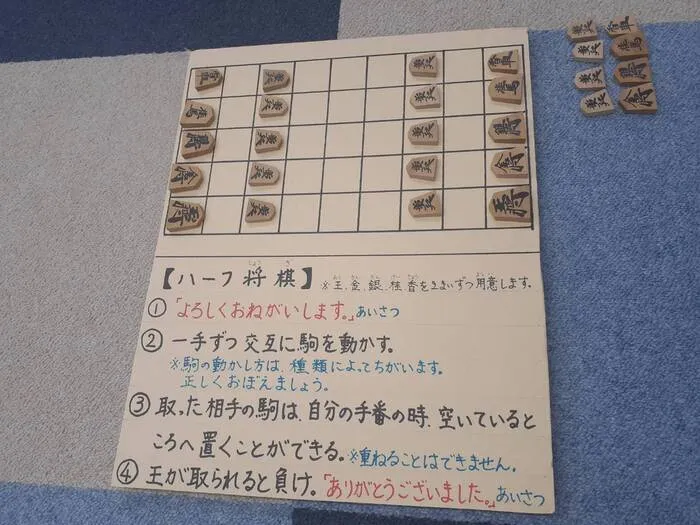 【ハーフ将棋】 ※王、金、銀、桂、香を2まいずつ用意します。
①「よろしくおねがいします。」あいさつ
② 一手ずつ交互に駒を動かす。
※駒の動かし方は、種類によってちがいます。
正しくおぼえましょう。
③ 取った相手の駒は、自分の手番の時、空いていると
ころへ置くことができる。※重ねることはできません。
④ 王が取られると負け。「ありがとうございました。」あいさつ